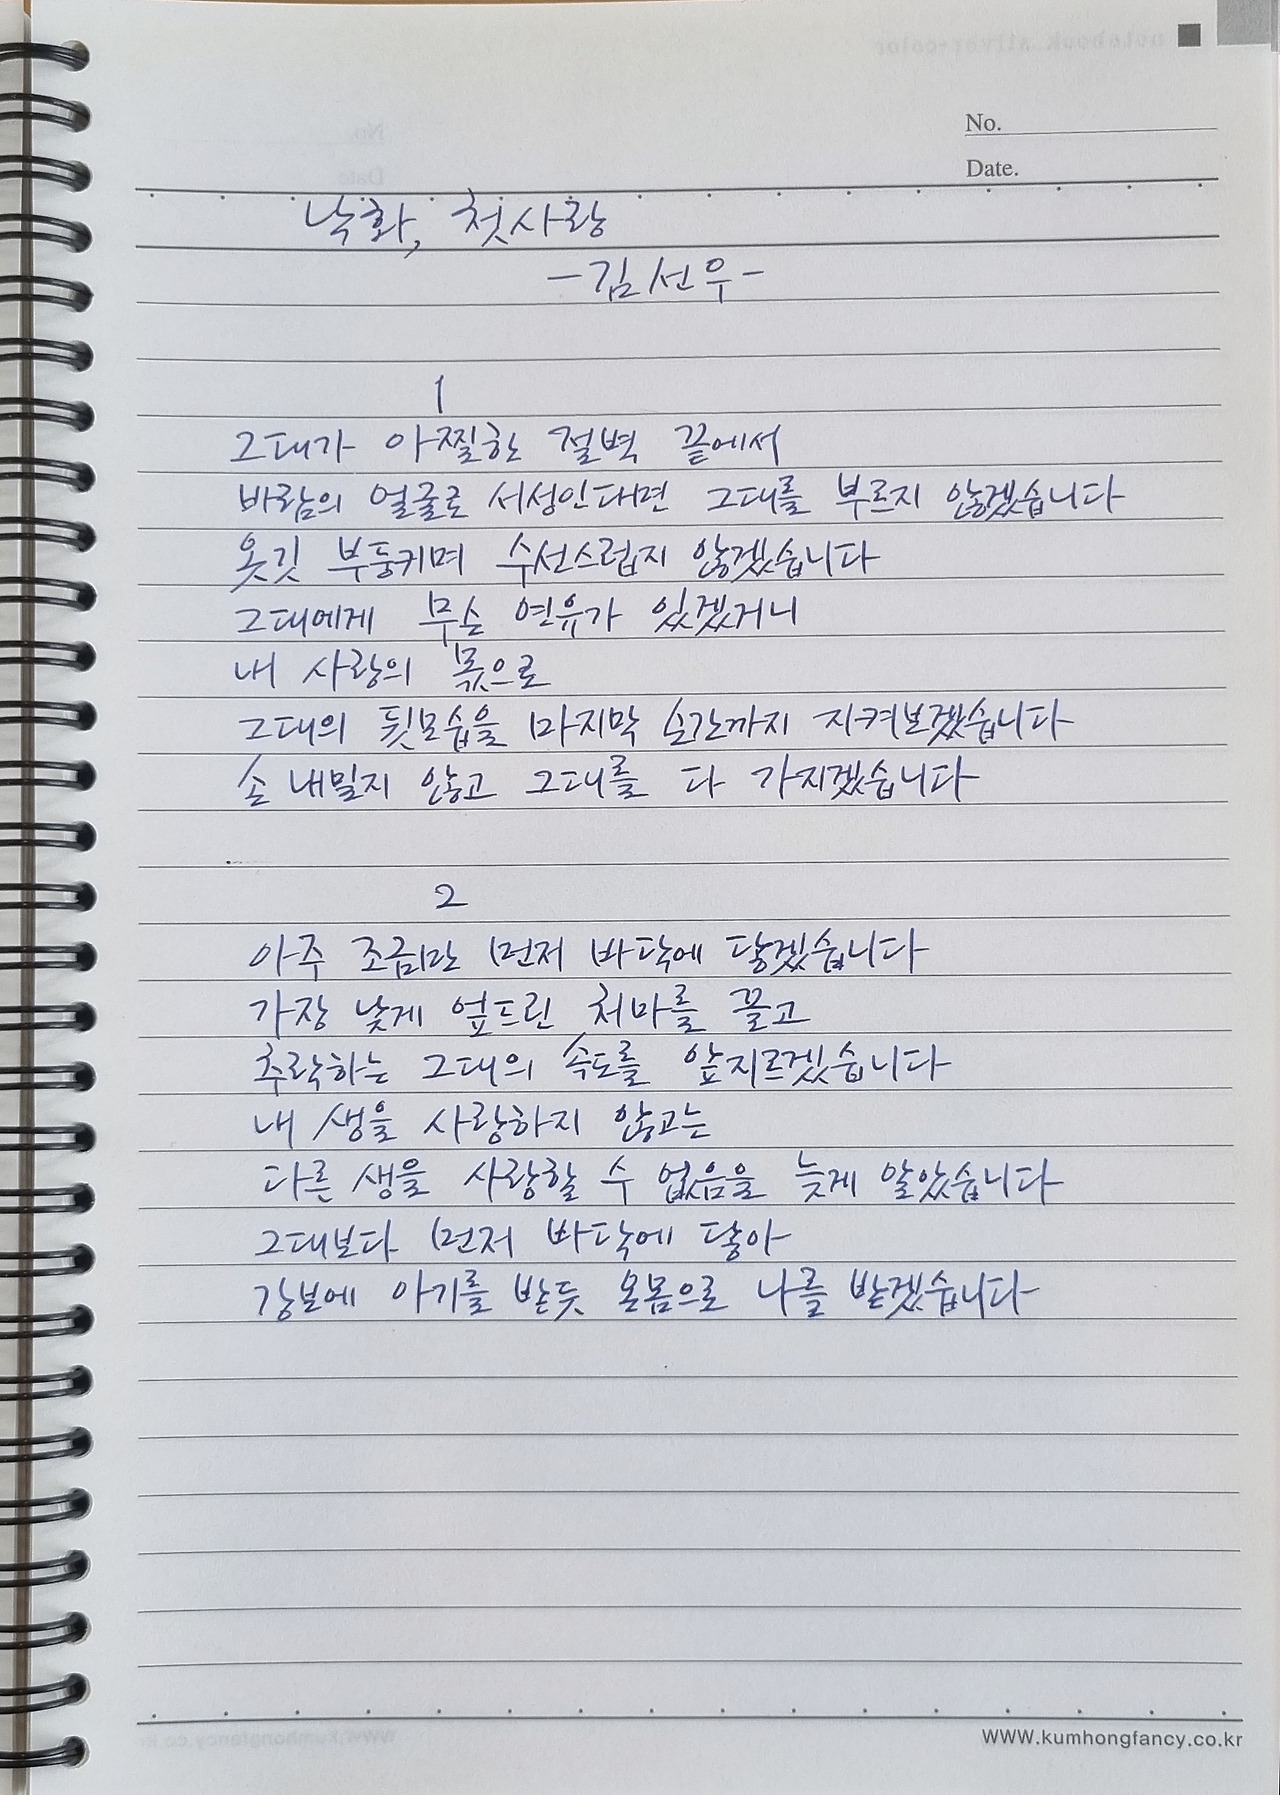 notebook silver-color
No.
Date.
낙화, 첫사랑
-김선우-
1
그대가 아찔한 절벽 끝에서
바람의 얼굴로 서성인대면 그대를 부르지 않겠습니다
옷깃 부둥키며 수선스럽지 않겠습니다
그대에게 무슨 연유가 있겠거니
내 사랑의 몫으로
그대의 뒷모습을 마지막 순간까지 지켜보겠습니다
손 내밀지 않고 그대를 다 가지겠습니다
2
아주 조금만 먼저 바닥에 닿겠습니다
가장 낮게 엎드린 처마를 끌고
추락하는 그대의 속도를 앞지르겠습니다
내 생을 사랑하지 않고는
다른 생을 사랑할 수 없음을 늦게 알았습니다
그대보다 먼저 바닥에 닿아
강보에 아기를 받듯 온몸으로 나를 받겠습니다
WWW.kumhongfancy.co.kr